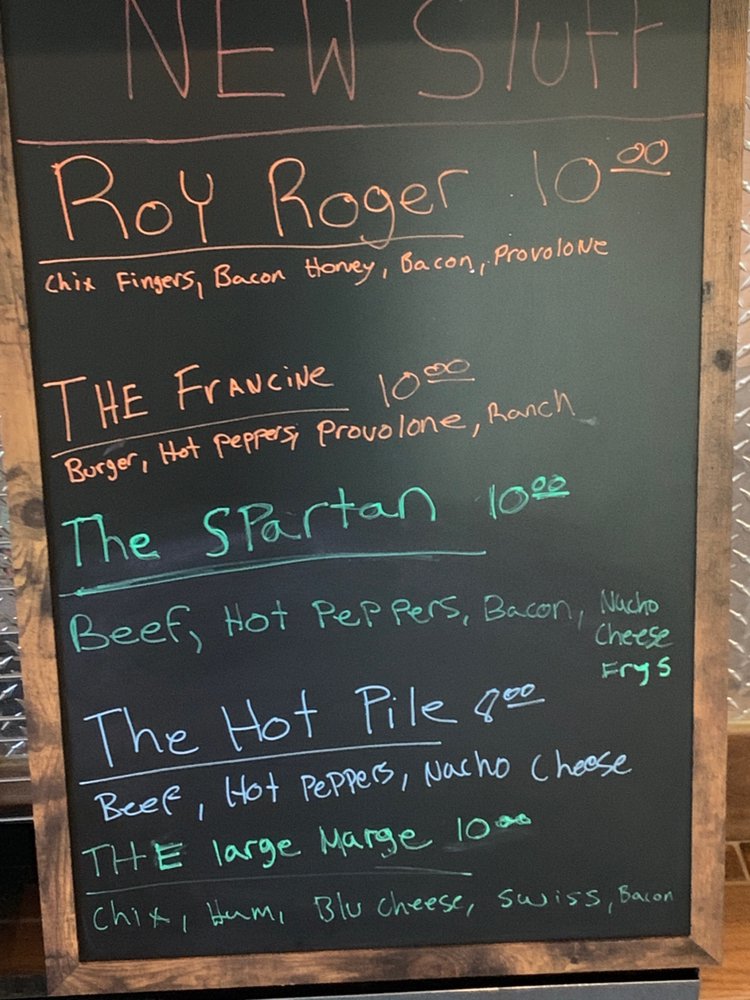 NEW STUFF
Roy Roger 10.00
Chix Fingers, Bacon Honey, Bacon, Provolone
THE FRANCINE 10.00
Burger, Hot Peppers, Provolone, Ranch
The Spartan 10.00
Beef, Hot Peppers, Bacon, Nacho
Cheese
Frys
The Hot Pile 8.00
Beef, Hot Peppers, Nacho Cheese
THE large Marge 10.00
Chix, Hum, Blu cheese, Swiss, Bacon